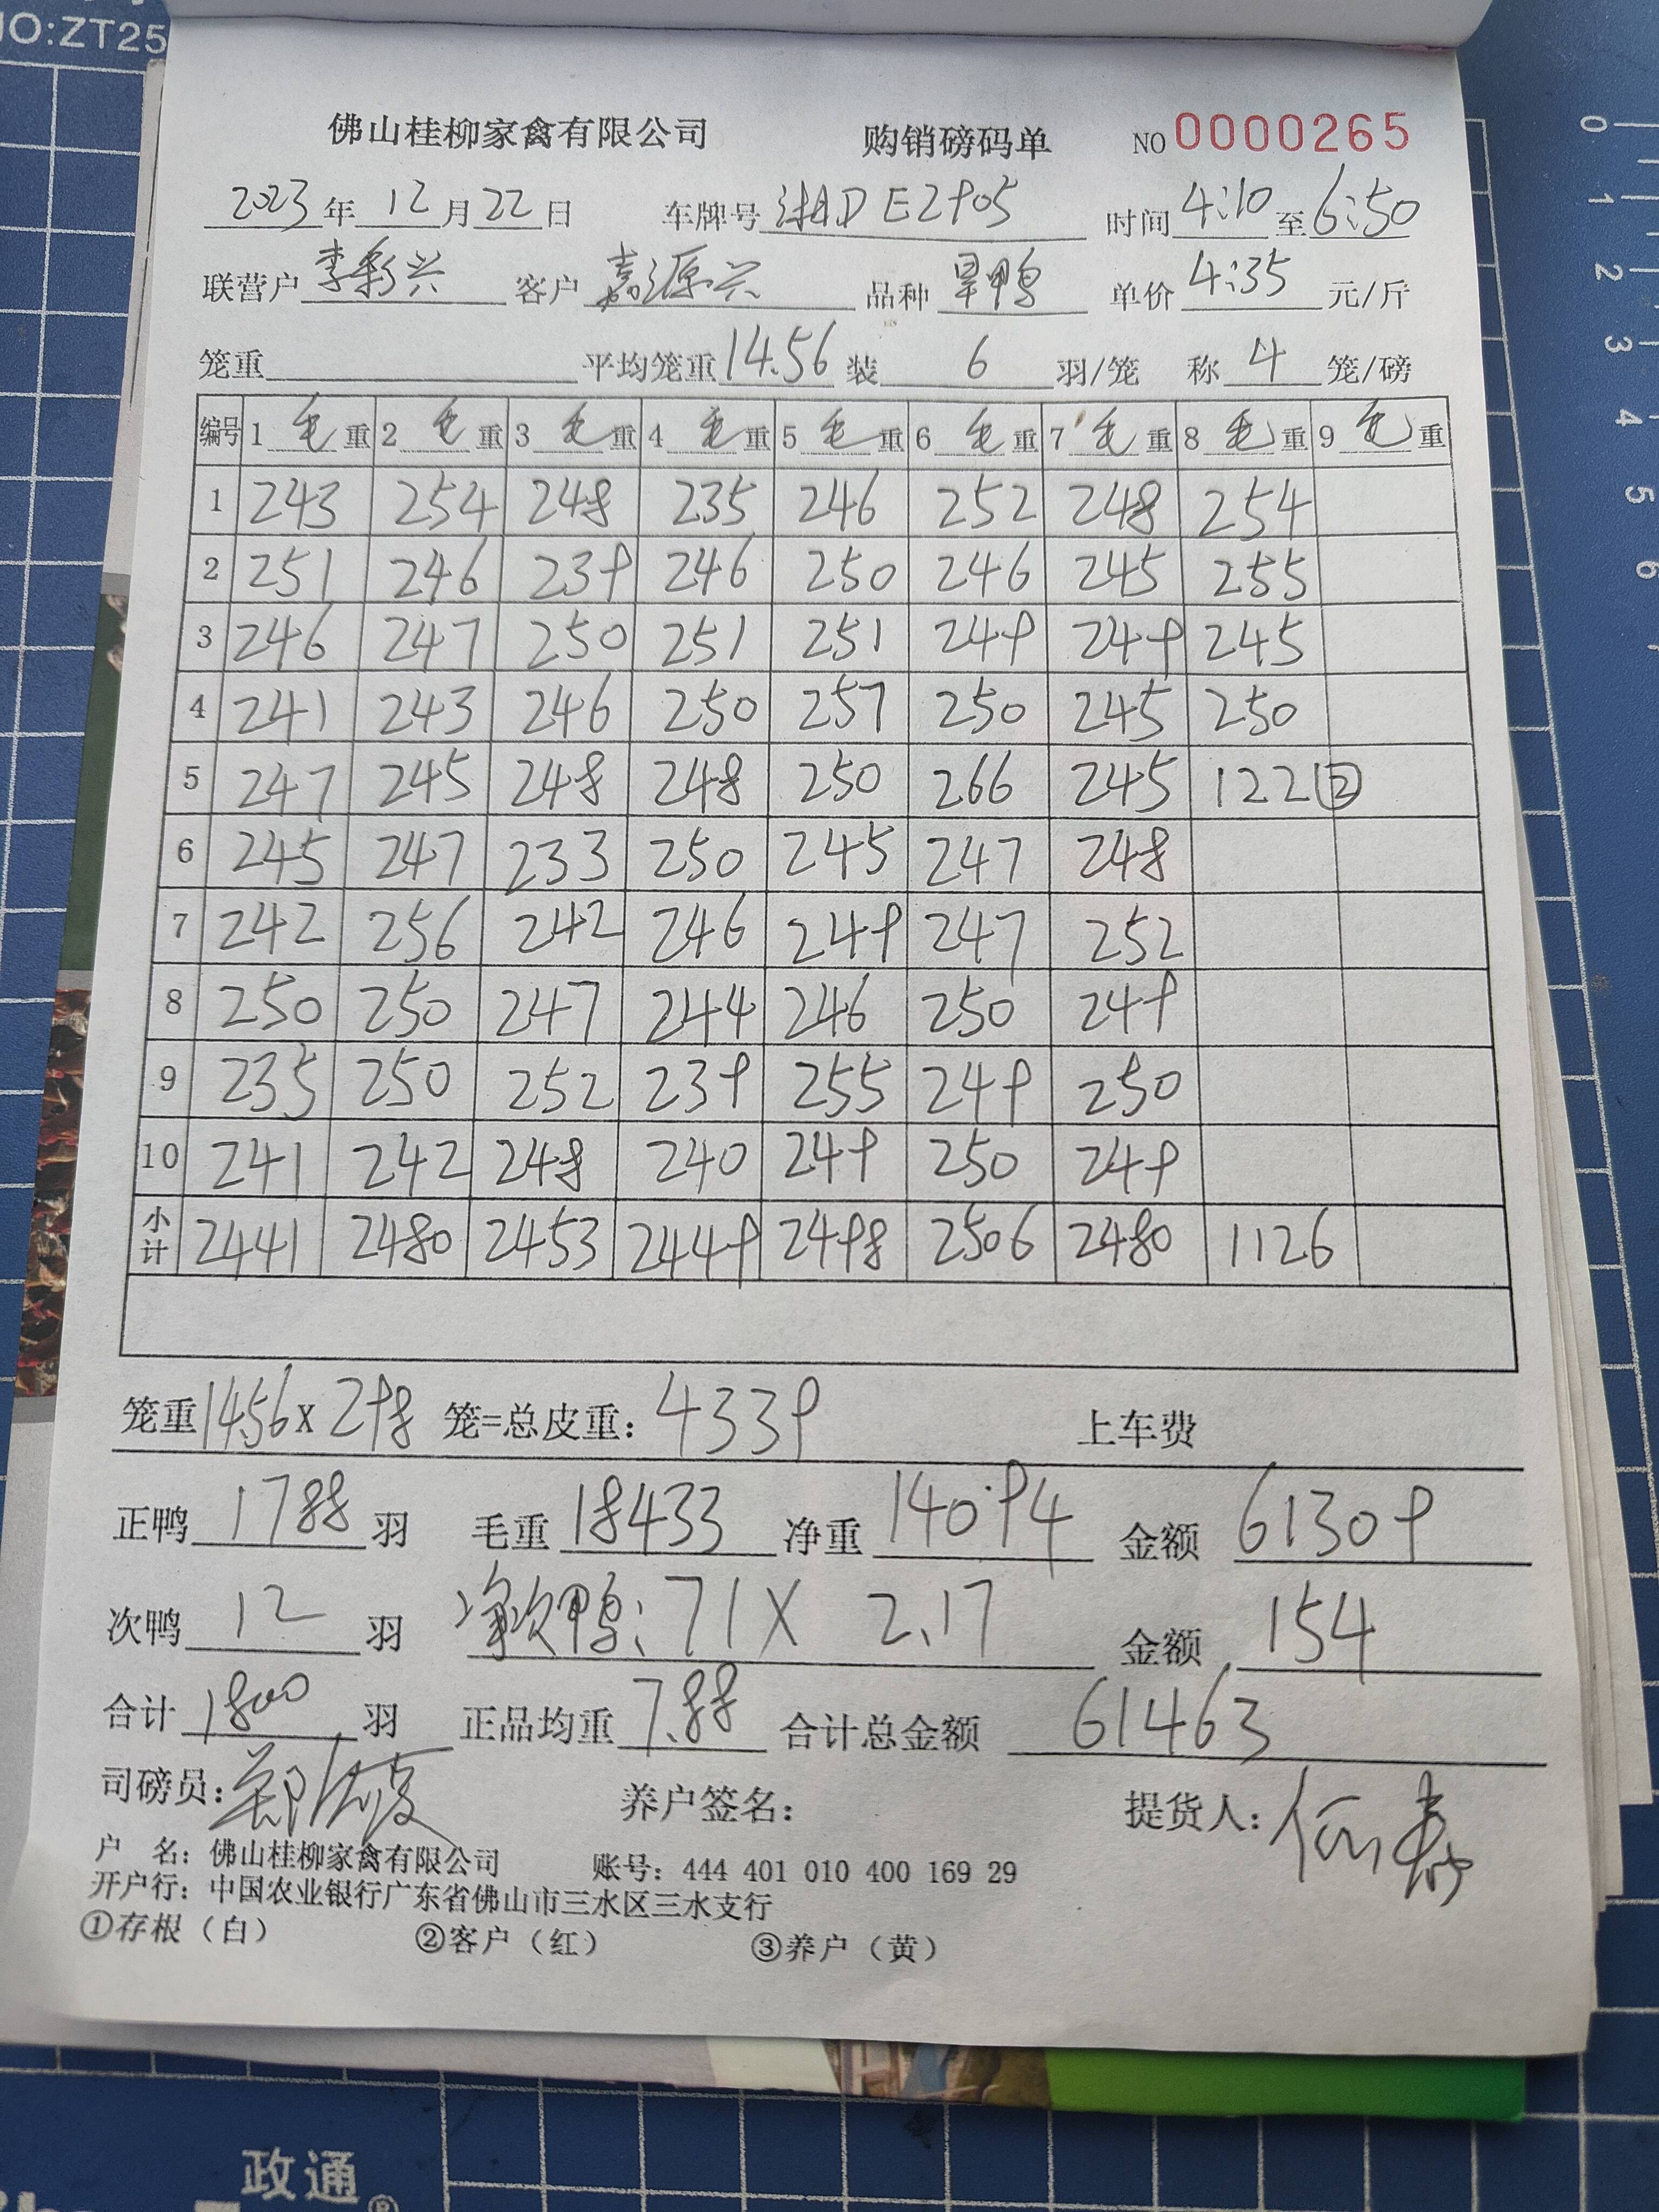 NO:ZT25
佛山桂柳家禽有限公司 购销磅码单 NO 0000265
2023年12月22日 车牌号 湘D E2905 时间 4:10 至 6:50
联营户 李彩兴 客户 嘉源兴 品种 旱鸭 单价 4:35 元/斤
笼重 平均笼重 14.56 装 6 羽/笼 称 4 笼/磅
编号 1 毛 重 2 毛 重 3 毛 重 4 毛 重 5 毛 重 6 毛 重 7 毛 重 8 毛 重 9 毛 重
1 243 254 248 235 246 252 248 254
2 251 246 239 246 250 246 245 255
3 246 247 250 251 251 249 249 245
4 241 243 246 250 257 250 245 250
5 247 245 248 248 250 266 245 122 ②
6 245 247 233 250 245 247 248
7 242 256 242 246 249 247 252
8 250 250 247 244 246 250 249
9 235 250 252 239 255 249 250
10 241 242 248 240 249 250 249
小计 2441 2480 2453 2449 2498 2506 2480 1126
笼重 1456 x 298 笼=总皮重: 4339 上车费
正鸭 1788 羽 毛重 18433 净重 140.94 金额 61309
次鸭 12 羽 净次鸭: 71 X 2.17 金额 154
合计 1800 羽 正品均重 7.88 合计总金额 61463
司磅员: 养户签名: 提货人:
户 名: 佛山桂柳家禽有限公司 账号: 444 401 010 400 169 29
开户行: 中国农业银行广东省佛山市三水区三水支行
①存根（白） ②客户（红） ③养户（黄）
0
1
2
3
4
5
6
政通®